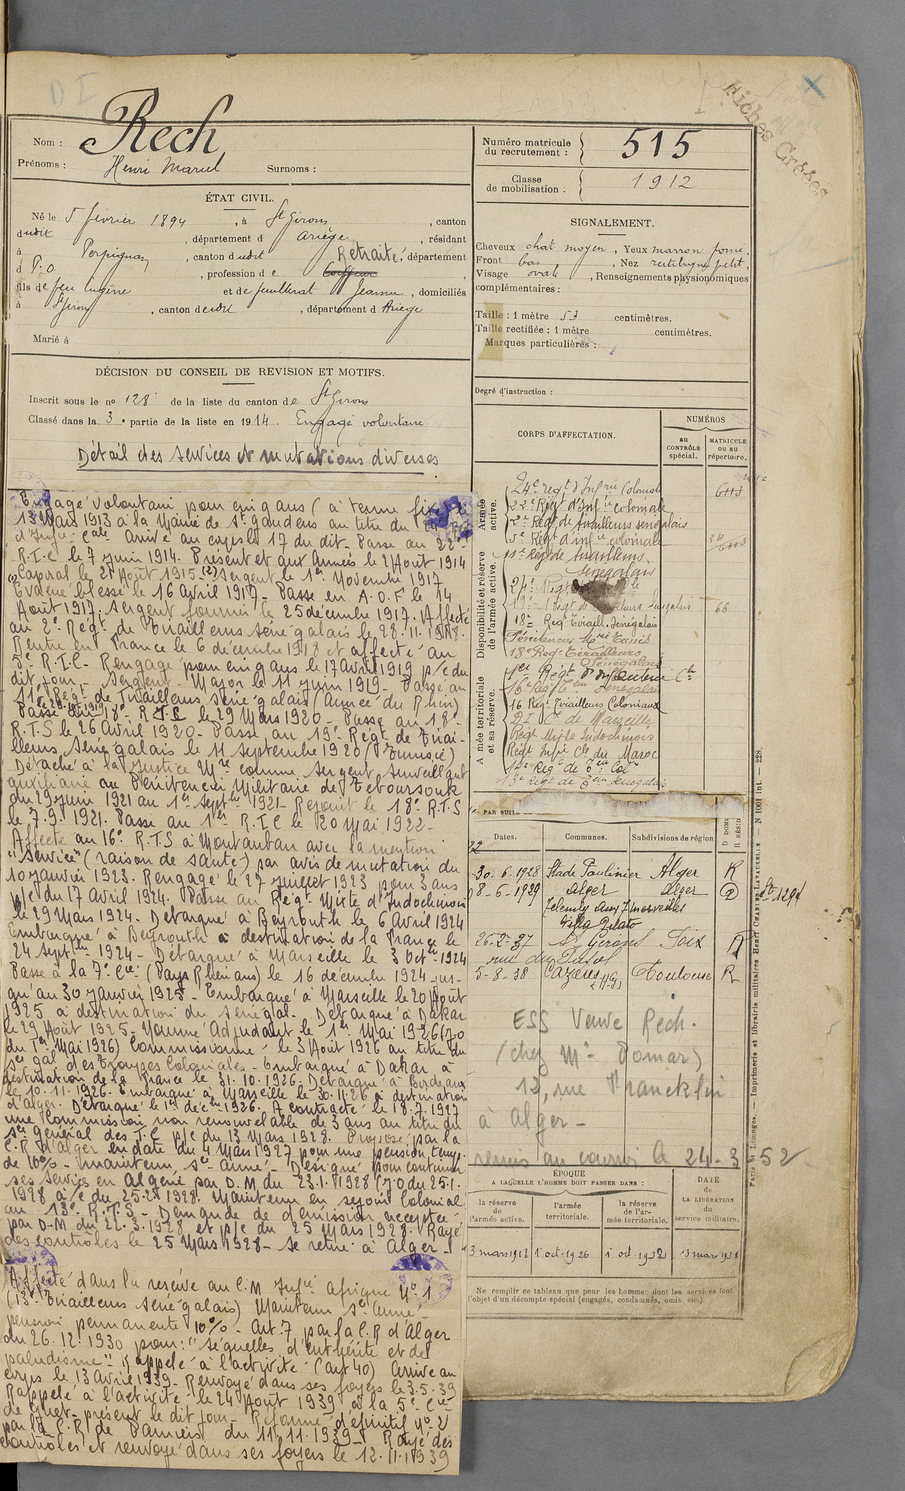 Fiches Grises
Nom : Rech
Prénoms : Henri Marcel Surnoms :
Numéro matricule du recrutement : 515
Classe de mobilisation : 1912
ÉTAT CIVIL.
Né le 5 février 1894, à St Girons, canton
dudit, département d Ariège, résidant
à Perpignan, canton dudit, département
d P.O., profession de Coiffeur Retraité
fils de feu Eugène et de Jeanne, domiciliés
à St Girons, canton dudit, département d Ariège
Marié à
SIGNALEMENT.
Cheveux chat moyen, Yeux marron foncé,
Front bas, Nez rectiligne petit,
Visage ovale, Renseignements physionomiques
complémentaires :
Taille : 1 mètre 53 centimètres.
Taille rectifiée : 1 mètre centimètres.
Marques particulières :
DÉCISION DU CONSEIL DE REVISION ET MOTIFS.
Inscrit sous le no 128 de la liste du canton de St Girons
Classé dans la 3e partie de la liste en 1914. Engagé volontaire
Détail des services et mutations diverses
Degré d'instruction :
Engagé volontaire pour cinq ans (à terme fixe) le
13 Mars 1913 à la Mairie de St Gaudens au titre du
d'Infie Cale Arrivé au corps le 17 du dit - Passé au 22e
R.I.C le 7 juin 1914. Présent et aux Armées le 2 Août 1914
Caporal le 21 Août 1915 - Sergent le 1er Novembre 1917
Evacué blessé le 16 avril 1917 - Passé en A.O.F le 14
Août 1917. Sergent fourrier le 25 décembre 1917. Affecté
au 2e Régt de Tirailleurs sénégalais le 28.11.1918.
Rentré en France le 6 décembre 1918 et affecté au
5e R.I.C - Rengagé pour cinq ans le 17 avril 1919 p/c du
dit jour - Sergent-Major le 11 juin 1919 - Passé au
11e Régt de Tirailleurs Sénégalais (Armée du Rhin)
Passé au 18e R.T.S le 29 Mars 1920 - Passé au 18e
R.T.S le 26 Avril 1920 - Passé au 19e Régt de Tirail-
lleurs Sénégalais le 11 septembre 1920 (Tunisie)
Détaché à la justice Mre comme Sergent Surveillant
auxiliaire au Pénitencier Militaire de Téboursouk
du 29 juin 1921 au 1er septre 1921 - Rejoint le 18e R.T.S
le 7.9.1921. Passé au 1er R.I.C le 20 Mai 1922 -
Affecté au 16e R.T.S à Montauban avec la mention
"Service" (raison de santé) par avis de mutation du
10 janvier 1923. Rengagé le 27 juillet 1923 pour 3 ans
p/c du 17 Avril 1924. Passé au Régt Mixte d'Indochinois
le 29 Mars 1924 - Débarqué à Beyrouth le 6 Avril 1924
Embarqué à Beyrouth à destination de la France le
24 septre 1924 - Débarqué à Marseille le 3 Octre 1924
Passé à la 7e Cie (Pays Rhénans) le 16 décembre 1924 jus-
qu'au 30 janvier 1925 - Embarqué à Marseille le 20 Août
1925 à destination du Sénégal - Débarqué à Dakar
le 29 Août 1925 - Nommé Adjudant le 1er Mai 1926 (J.O
du 1er Mai 1926) Commissionné le 3 Août 1926 au titre du
Sce gal des Troupes Coloniales - Embarqué à Dakar à
destination de la France le 31.10.1926. Débarqué à Bordeaux
le 10.11.1926. Embarqué à Marseille le 30.11.26 à destination
d'Alger. Débarqué le 1er déc. 1926. A contracté le 18.7.1927
une commission non renouvelable de 3 ans au titre du
Sce général des T.C p/c du 13 Mars 1928. Proposé par la
C.R d'Alger en date du 4 Mars 1927 pour une pension temp.
de 10% - maintenu Sce Armé - Désigné pour continuer
ses services en Algérie par D.M du 23.1.1928 (J.O du 25.1.
1928 à/c du 25.2.1928. Maintenu en séjour Colonial
au 13e R.T.S - Demande de démission acceptée
par D.M du 22.3.1928 et p/c du 25 Mars 1928. Rayé
des contrôles le 25 Mars 1928 - se retire à Alger -
Affecté dans la réserve au C.M Infie Afrique No 1
(13e Tirailleurs Sénégalais) Maintenu Sce Armé
pension permanente 10% - Art. 7 par la C.R d'Alger
du 26.12.1930 pour : "séquelles d'entérite et de
paludisme" - Rappelé à l'activité (art 40) Arrivé au
corps le 13 avril 1939 - Renvoyé dans ses foyers le 3.5.39
Rappelé à l'activité le 24 Août 1939 à la 5e Cie
de Guet - présent le dit jour - Réformé définitif No 2
par la C.R de Pamiers du 11.11.1939 - Rayé des
contrôles et renvoyé dans ses foyers le 12.11.1939
CORPS D'AFFECTATION.
NUMÉROS
au CONTRÔLE spécial.
MATRICULE ou au répertoire.
Armée active.
Disponibilité et réserve de l'armée active.
Armée territoriale et sa réserve.
24e régt d'Infrie Coloniale
22e Régt d'Infie coloniale
2e Régt de tirailleurs sénégalais
5e Régt d'infrie coloniale
11e Rég de tirailleurs
Sénégalais
66
18e Régt Tiraill. Sénégalais
Pénitencier Mre Tunis
18e Régt Tirailleurs
Sénégalais
1er Régt d'Infanterie Cle
16e Régt Tirailleurs Coloniaux
Régt Mixte Indochinois
Régt Infie Cle du Maroc
13e Régt de Tirs Sénégalais
PAR SUITE
Dates. Communes. Subdivisions de région
D DOM. R RÉSID.
30-6-1928 Stade Paulinier Alger R
8-6-1929 Alger Alger D
26-2-37 St Girons Foix
5-8-38 Cazères (H.G) Toulouse R
ESS Veuve Rech.
(chez Me Pomar)
12, rue Francklin
à Alger -
remis au courrier le 24-3-52
ÉPOQUE
A LAQUELLE L'HOMME DOIT PASSER DANS :
la réserve de l'armée active.
l'armée territoriale.
la réserve de l'armée territoriale.
DATE de LA LIBÉRATION du service militaire.
1 oct. 1926
Ne remplir ce tableau que pour les hommes dont les services font
l'objet d'un décompte spécial (engagés, condamnés, omis etc.).